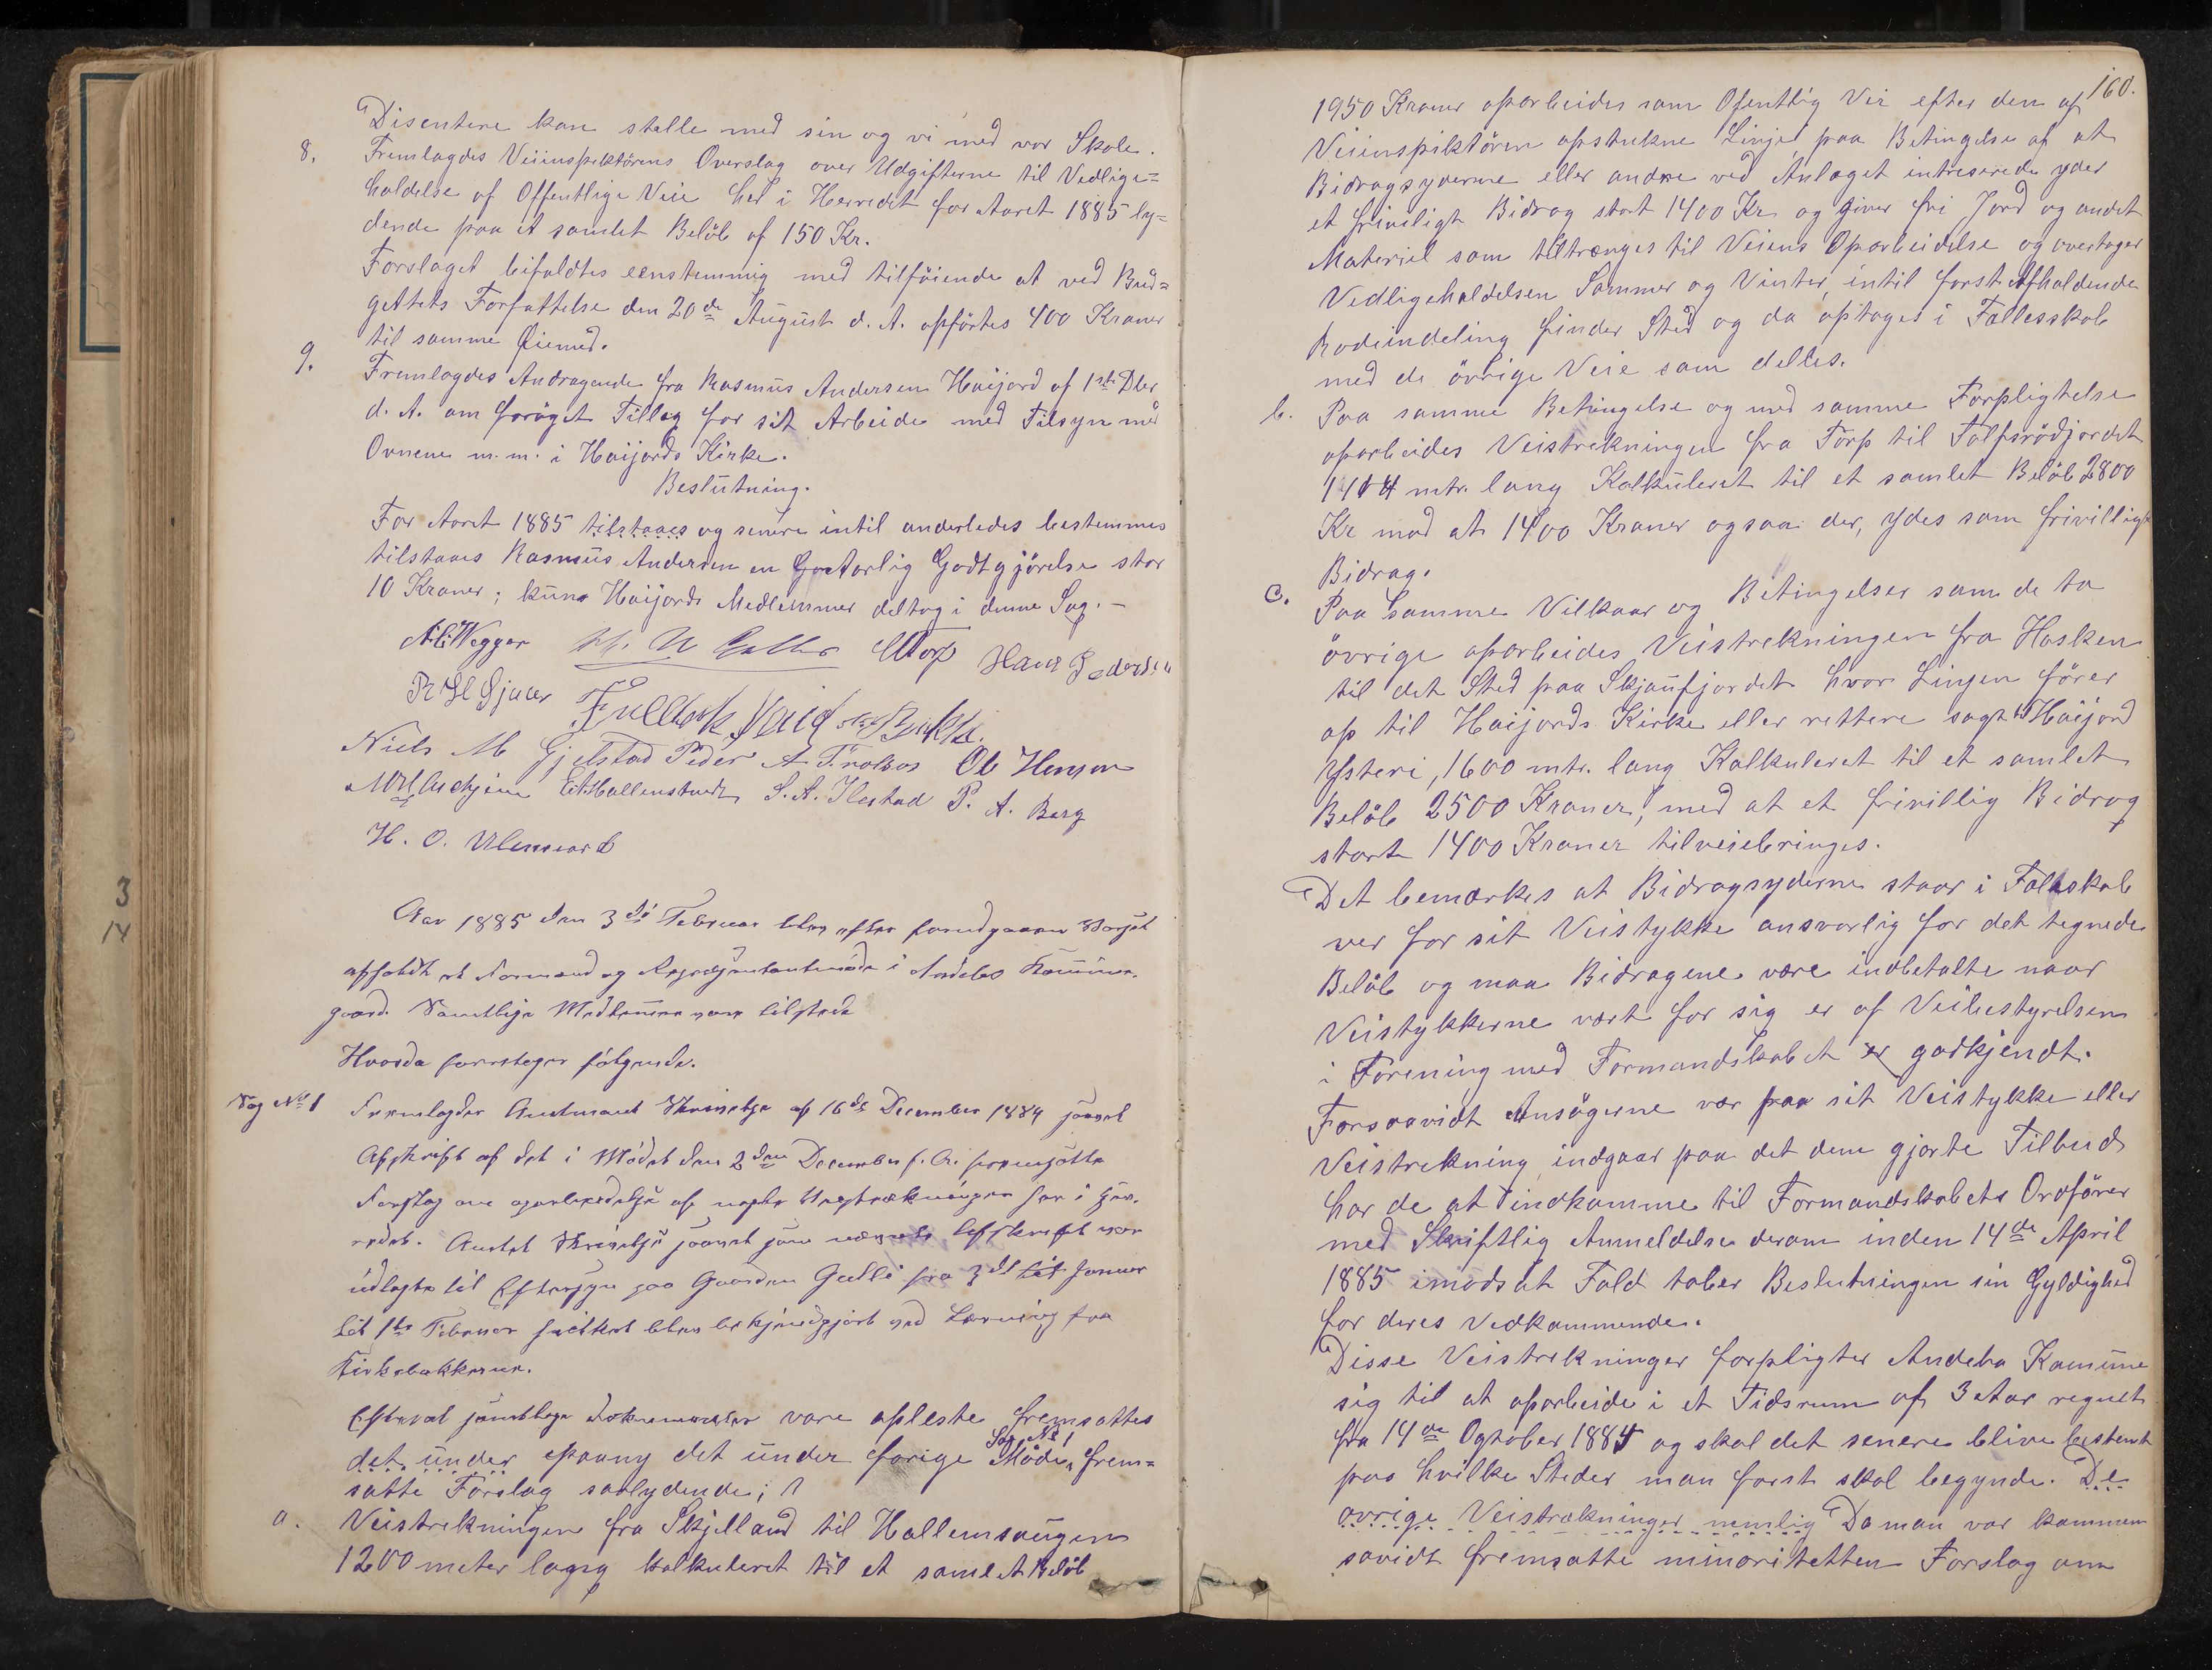 Disentere kan stelle med sin og vi med vor Skole.
8. Fremlagdes Veiinspektörens Overslag over Udgifterne til Vedlige=
holdelse af Offentlige Veie her i Herredet for Aaret 1885 ly=
dende paa et samlet Belöb af 150 Kr.
Forslaget bifaldtes eenstemmig med tilföiende at ved Bud=
gettets Forfattelse den 20de August d. A. opförtes 400 Kroner
til samme Öiemed.
9. Fremlagdes Andragende fra Rasmus Andersen Höijord af 1ste Dbr
d. A. om foröget Tillæg for sit Arbeide med Tilsyn med
Ovnene m. m. i Höijords Kirke.
Beslutning.
For Aaret 1885 tilstaaes og senere intil anderledes bestemmes
tilstaaes Rasmus Andersen en Aarlig Godtgjörelse stor
10 Kroner; kuns Höijords Medlemmer deltog i denne Sag. -
Hans Pedersen
Niels M Gjelstad Peder A. Trolsos Ole Hensen
Hallenstvedt S. A. Ilestad P. A. Berg
H. O. Ulensaard
Aar 1885 den 3die Februar blev efter foregaaende Varsel
afholdt et Formand og Repræsentantmöde i Andebo Kommune-
gaard. Samtlige Medlemmer vare tilstede
Hvorda foretoges fölgende.
Sag No 1 Fremlagdes Amtmand Skrivelse af 16de December 1884 samt
Afskrift af det i Mödet den 2den December f. A. fremsatte
Forslag om oparbeidelse af nogle Veistrækninger her i Her-
redet. Amtets Skrivelse samt nævnte Afskrift var
udlagte til Eftersyn paa Gaarden Galli fra 3de Januar
til 1ste Februar hvilket blev bekjendtgjort ved Læsning fra
Kirkebakkerne.
Efterat samtlige Dokumenter vare opleste fremsattes
det under epaany det under forige Möde, Sag No 1 frem=
satte Forslag saalydende;
a. Veistrekningen fra Skjelland til Hallemsaugen
1200 meter lagng Kalkuleret til et samlet Belöb
160.
1950 Kroner oparbeides som Ofentlig Vei efter den af
Veiinspiktören opstukne Linje, paa Betingelse af at
Bidragsyderne eller andre ved Anlæget intreserede yder
et friviligt Bidrag stort 1400 Kr og giver fri Jord og andet
Materiel som tiltrænges til Veiens Oparbeidelse og overtager
Vedligeholdelsen Sommer og Vinter, intil forst Afholdende
Rodeindeling finder Sted og da optages i Fællesskab
med de övrige Veie som deltes.
b. Paa samme Betingelse og med samme Forpligtelse
oparbeides Veistrekningen fra Torp til Tolfsrödjordet
mtr. lang Kalkuleret til et samlet Belöb 2800
Kr mod at 1400 Kroner ogsaa der, ydes som frivilligt
Bidrag.
c. Paa samme Vilkaar og Betingelser som de to
övrige oparbeides Veistrekningen fra Hasken
til det Sted paa Skjaufjordet hvor Linjen förer
op til Höijords Kirke eller rettere sagt Höijord
Ysteri, 1600 mtr. lang Kalkuleret til et samlet
Belöb 2500 Kroner, med at et frivillig Bidrag
stort 1400 Kroner tilveiebringes.
Det bemærkes at Bidragsyderne staar i Fælleskab
ver for sit Veistykke ansvarlig for det tegnede
Belöb og maa Bidragene være indbetalte naar
Veistykkerne vært for sig er af Veibestyrelsen
i Forening med Formandskabet er godkjendt.
Forsaavidt Ansögerne vær paa sit Veistykke eller
Veistrekning indgaar paa det dem gjorte Tilbud
har de at indkomme til Formandskabets Ordförer
med Skriftlig Anmeldelse derom inden 14de April
1885 imodsat Fald taber Beslutningen sin Gyldighed
for deres Vedkommende.
Disse Veistrekninger forpligter Andebo Komune
sig til at oparbeide i et Tidsrum af 3 Aar regnet
fra 14de Ogtober 1884 og skal det senere blive bestemt
paa hvilke Steder man forst skal begynde. De
övrige Veistrækninger nemlig Da man var kommen
savidt fremsatte minoritetten Forslag om